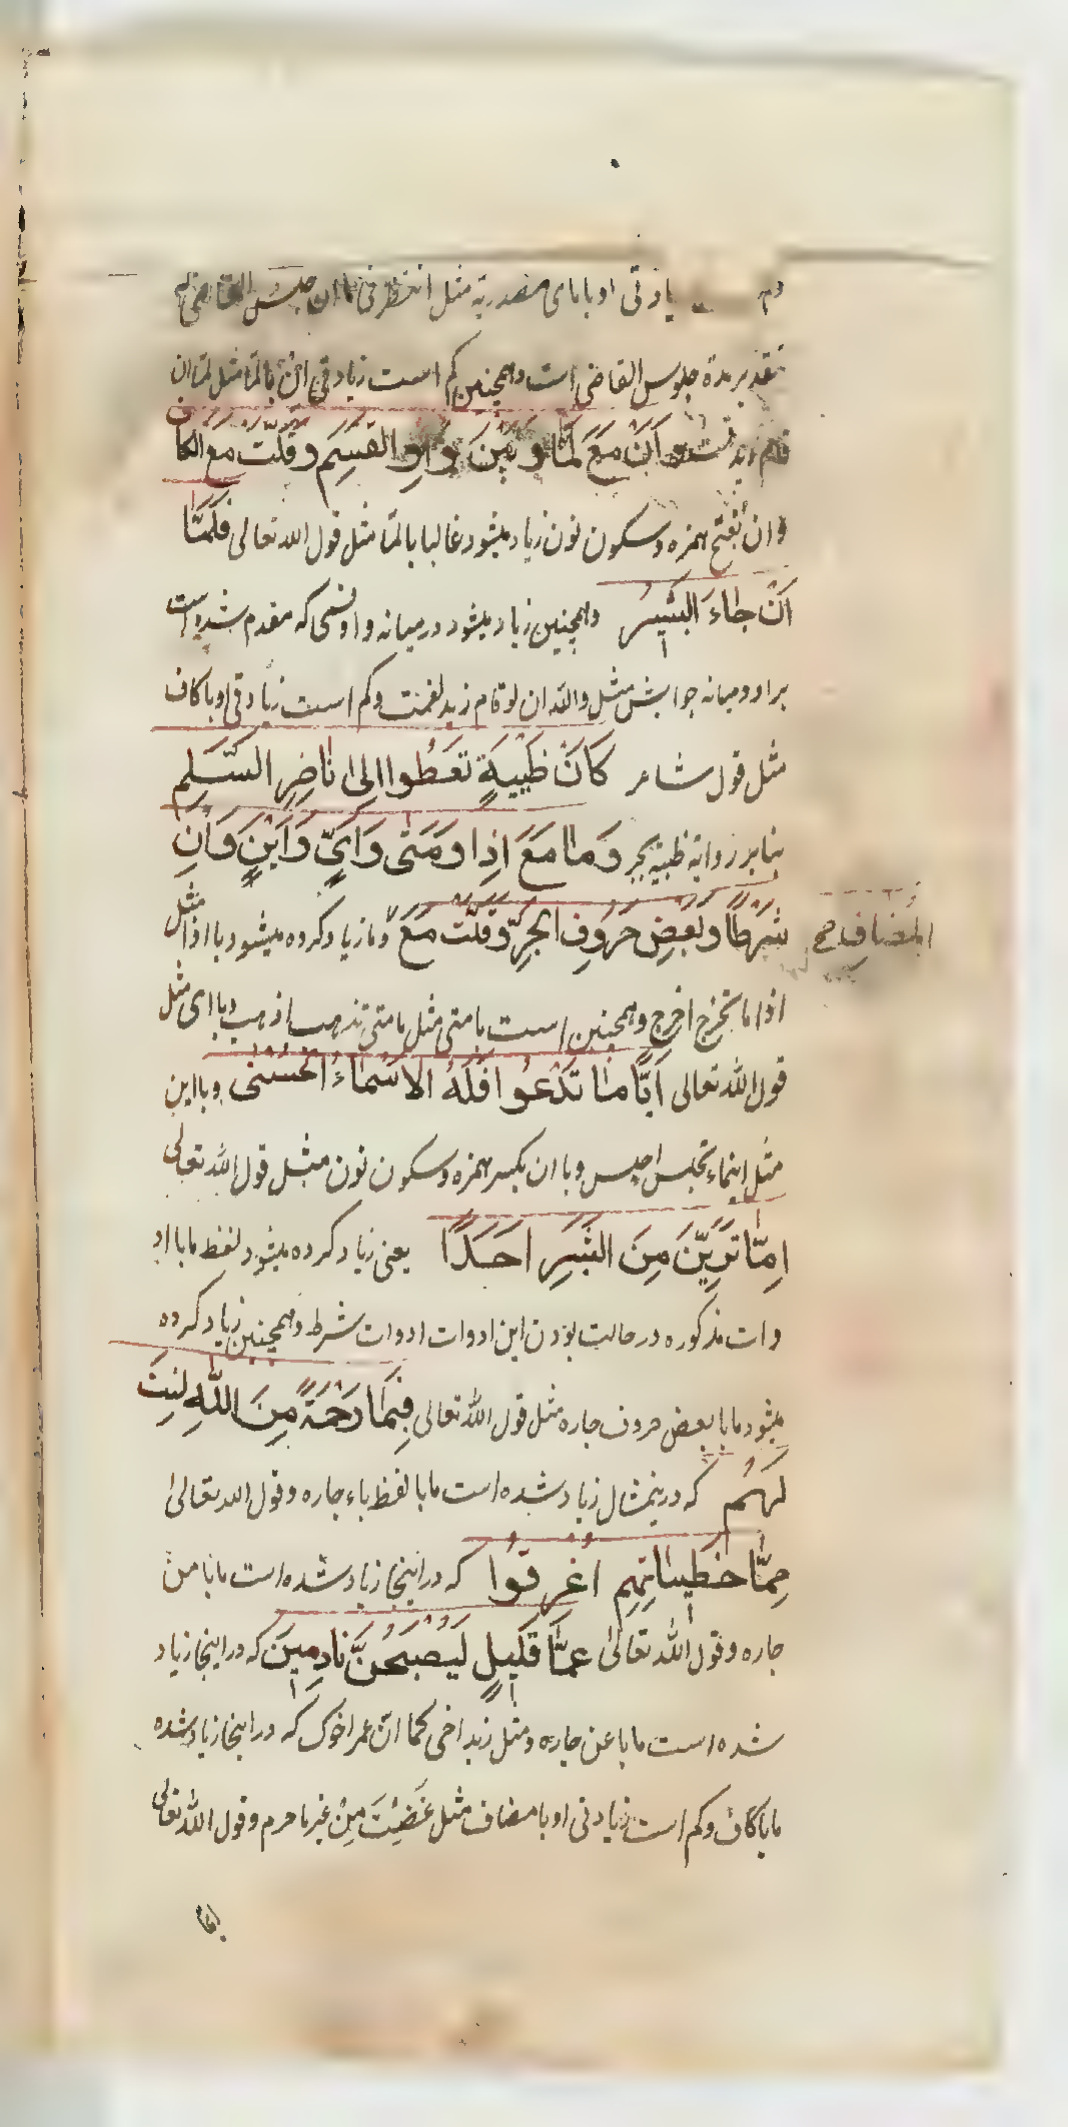 یادتی او با مای مصدریه مثل انتظرنی ما ان جلس القاضی
تقدیر مدة جلوس القاضی است و همچنین کم است زیادتی ان بالمّا مثل لما ان
قام زید قمت وَاَنْ مَعَ لَمَّا وَبَيْنَ وَاوِ القَسَمِ وَقَلَّتْ مَعَ الكَافِ
و ان بفتح همزه و سکون نون زیاد میشود غالبا بالمّا مثل قول الله تعالی فَلَمَّا
اَنْ جاءَ البَشيرُ و همچنین زیاد میشود در میانه واو قسمی که مقدم شده است
بر او و میانه جوابش مثل والله ان لو قام زید لقمت و کم است زیادتی او با کاف
مثل قول شاعر كَاَنْ ظَبْيَةٍ تَعَطُوا اِلیٰ ناضِرِ السَّلَمِ
بنا بر روایة ظبیة بجر وَمَا مَعَ اِذا وَمَتٰى وَاَيٍّ وَاَيْنَ وَاَنِ
شَرْطًا وَبَعْضِ حُرُوفِ الجَرِّ وَقَلَّتْ مَعَ و ما زیاد کرده میشود با اذا مثل
المُضافِ صح
اذا ما تخرج اخرج و همچنین است با متی مثل ما متی تذهب اذهب و با ای مثل
قول الله تعالی اَيًّا ما تَدْعُوا فَلَهُ الاَسْماءُ الْحُسْنٰى و با این
مثل اینما تجلس اجلس و با ان بکسر همزه و سکون نون مثل قول الله تعالی
اِمّا تَرَيِّنَ مِنَ البَشَرِ اَحَدًا یعنی زیاد کرده میشود لفظ ما با اد
وات مذکوره در حالت بودن این ادوات ادوات شرط و همچنین زیاد کرده
میشود ما با بعض حروف جاره مثل قول الله تعالی فَبِمَا رَحْمَةٍ مِنَ اللّٰهِ لِنتَ
لَهُمْ که درینمثال زیاد شده است ما با لفظ باء جاره و قول الله تعالی
مِمّا خَطيئاتِهِم اُغْرِقُوا که در اینجا زیاد شده است ما با من
جاره و قول الله تعالی عَمَّا قَليلٍ لَيُصْبِحُنَّ نادِمينَ که در اینجا زیاد
شده است ما با عن جاره و مثل زید اخی کما ان عمرا خوک که در اینجا زیاد شده
ما با کاف و کم است زیادتی او با مضاف مثل غَضِبْتَ مِنْ غیر ما جرم و قول الله تعالی